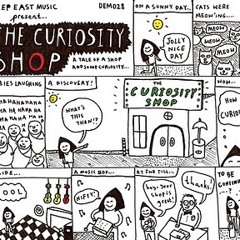 EP EAST MUSIC
present...
DEM028
THE CURIOSITY
SHOP
A TALE OF A SHOP
AND SOME CURIOSITY...
ON A SUNNY DAY...
JOLLY
NICE
DAY
CATS WERE
MEOW'ING...
MEOW
MEOW
MEOW
IES LAUGHING
HAHAHAHAHA
A DISCOVERY!
WHAT'S
THIS
THEN!?
THE CURIOSITY
SHOP
HOW
CURIO
COOL
A MUSIC BOX...
NIFTY!
AT THE TILL...
hey, your
shop is
great!
thanks!
TO BE